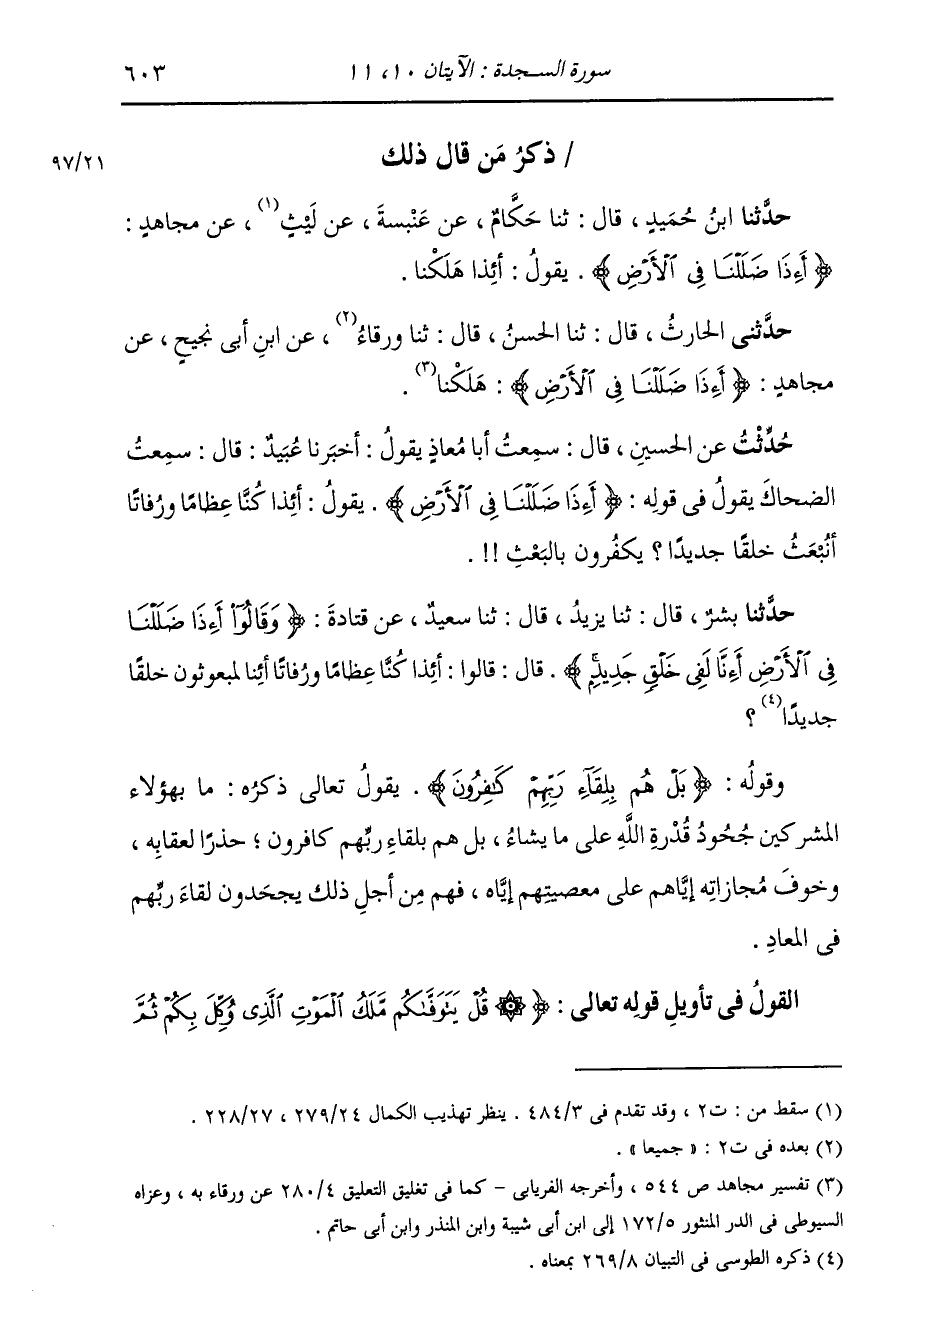 سورة السجدة : الآيتان ١٠، ١١ ٦٠٣
/ ذكرُ مَن قال ذلك ٩٧/٢١
حدَّثنا ابنُ حُميدٍ ، قال : ثنا حَكَّامٌ ، عن عَنْبسةَ ، عن لَيْثٍ(١) ، عن مجاهدٍ :
﴿ أَءِذَا ضَلَلْنَا فِى ٱلْأَرْضِ ﴾ . يقولُ : أئِذا هَلَكْنا .
حدَّثنى الحارثُ ، قال : ثنا الحسنُ ، قال : ثنا ورقاءُ(٢) ، عن ابنِ أبى نجيحٍ ، عن
مجاهدٍ : ﴿ أَءِذَا ضَلَلْنَا فِى ٱلْأَرْضِ ﴾ : هَلَكْنا(٣) .
حُدِّثْتُ عن الحسينِ ، قال : سمِعتُ أبا مُعاذٍ يقولُ : أخبَرنا عُبَيدٌ : قال : سمِعتُ
الضحاكَ يقولُ فى قولِه : ﴿ أَءِذَا ضَلَلْنَا فِى ٱلْأَرْضِ ﴾ . يقولُ : أئِذا كُنَّا عِظامًا ورُفاتًا
أنُبْعَثُ خلقًا جديدًا ؟ يكفُرون بالبَعْثِ !! .
حدَّثنا بشرٌ ، قال : ثنا يزيدُ ، قال : ثنا سعيدٌ ، عن قتادةَ : ﴿ وَقَالُوٓا۟ أَءِذَا ضَلَلْنَا
فِى ٱلْأَرْضِ أَءِنَّا لَفِى خَلْقٍ جَدِيدٍۭ ﴾ . قال : قالوا : أئِذا كُنَّا عِظامًا ورُفاتًا أئِنا لمبعوثون خلقًا
جديدًا(٤) ؟
وقولُه : ﴿ بَلْ هُم بِلِقَآءِ رَبِّهِمْ كَـٰفِرُونَ ﴾ . يقولُ تعالى ذكرُه : ما بهؤلاء
المشركين جُحُودُ قُدْرةِ اللَّهِ على ما يشاءُ ، بل هم بلقاءِ ربِّهم كافرون ؛ حذرًا لعقابِه ،
وخوفَ مُجازاتِه إيَّاهم على معصيتِهم إيَّاه ، فهم مِن أجلِ ذلك يجحَدون لقاءَ ربِّهم
فى المعادِ .
القولُ فى تأويلِ قولِه تعالى : ﴿ ۞ قُلْ يَتَوَفَّىٰكُم مَّلَكُ ٱلْمَوْتِ ٱلَّذِى وُكِّلَ بِكُمْ ثُمَّ
(١) سقط من : ت٢ ، وقد تقدم فى ٤٨٤/٣ . ينظر تهذيب الكمال ٢٧٩/٢٤ ، ٢٢٨/٢٧ .
(٢) بعده فى ت٢ : « جميعا » .
(٣) تفسير مجاهد ص ٥٤٤ ، وأخرجه الفريابى - كما فى تغليق التعليق ٢٨٠/٤ عن ورقاء به ، وعزاه
السيوطى فى الدر المنثور ١٧٢/٥ إلى ابن أبى شيبة وابن المنذر وابن أبى حاتم .
(٤) ذكره الطوسى فى التبيان ٢٦٩/٨ بمعناه .